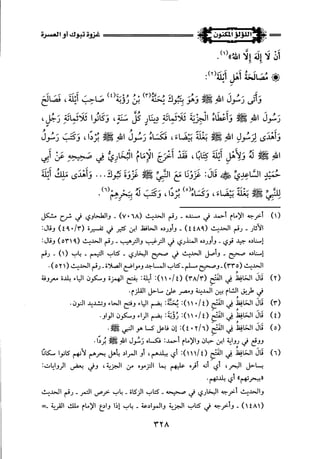 غزوة تبوك أو العسرة
اللؤلؤ المكنون
أَنْ لَا إِلَهَ إِلَّا اللهُ(١).
* مُصَالَحَةُ أَهْلِ أَيْلَةَ(٢):
وَأَتَى رَسُولَ اللهِ ﷺ وَهُوَ بِتَبُوكَ يُحَنَّةُ(٣) بْنُ رُؤْبَةَ(٤) صَاحِبُ أَيْلَةَ، فَصَالَحَ
رَسُولَ اللهِ ﷺ وَأَعْطَاهُ الْجِزْيَةَ ثَلَاثَمِائَةِ دِينَارٍ كُلَّ سَنَةٍ، وَكَانُوا ثَلَاثَمِائَةِ رَجُلٍ،
وَأَهْدَى لِرَسُولِ اللهِ ﷺ بَغْلَةً بَيْضَاءَ، فَكَسَاهُ رَسُولُ اللهِ ﷺ بُرْدًا، وَكَتَبَ رَسُولُ
اللهِ ﷺ لَهُ وَلِأَهْلِ أَيْلَةَ كِتَابًا، فَقَدْ أَخْرَجَ الإِمَامُ الْبُخَارِيُّ فِي صَحِيحِهِ عَنْ أَبِي
حُمَيْدٍ السَّاعِدِيِّ ﷺ قَالَ: غَزَوْنَا مَعَ النَّبِيِّ ﷺ غَزْوَةَ تَبُوكَ... وَأَهْدَى مَلِكُ أَيْلَةَ
لِلنَّبِيِّ ﷺ بَغْلَةً بَيْضَاءَ، وَكَسَاهُ(٥) بُرْدًا، وَكَتَبَ لَهُ بِبَحْرِهِمْ(٦).
(١) أخرجه الإمام أحمد في مسنده - رقم الحديث (٧٠٦٨) - والطحاوي في شرح مشكل
الآثار - رقم الحديث (٤٤٨٩) - وأورده الحافظ ابن كثير في تفسيره (٤٩٠/٣) وقال:
إسناده جيد قوي - وأورده المنذري في الترغيب والترهيب - رقم الحديث (٥٣١٩) وقال:
إسناده صحيح - وأصل الحديث في صحيح البخاري - كتاب التيمم - باب (١) - رقم
الحديث (٣٣٥) - وصحيح مسلم - كتاب المساجد ومواضع الصلاة - رقم الحديث (٥٢١).
(٢) قال الحافظ في الفتح (٣٨/٣) (١١٠/٤): أيلة: بفتح الهمزة وسكون الياء بلدة معروفة
في طريق الشام بين المدينة ومصر على ساحل القلزم.
(٣) قال الحافظ في الفتح (١١٠/٤): يُحَنَّة: بضم الياء وفتح الحاء وتشديد النون.
(٤) قال الحافظ في الفتح (١١٠/٤): رُؤْبَة: بضم الراء وسكون الواو.
(٥) قال الحافظ في الفتح (٤٠٢/٦): إن فاعل كسا هو النبي ﷺ.
ووقع في رواية ابن حبان والإمام أحمد: فكساه رسول الله ﷺ بُردًا.
(٦) قال الحافظ في الفتح (١١١/٤): أي ببلدهم، أو المراد بأهل بحرهم لأنهم كانوا سكانًا
بساحل البحر، أي أنه أقره عليهم بما التزموه من الجزية، وفي بعض الروايات:
«ببحرتهم» أي بلدتهم.
والحديث أخرجه البخاري في صحيحه - كتاب الزكاة - باب خرص التمر - رقم الحديث
(١٤٨١) - وأخرجه في كتاب الجزية والموادعة - باب إذا وادع الإمام ملك القرية -=
٣٢٨